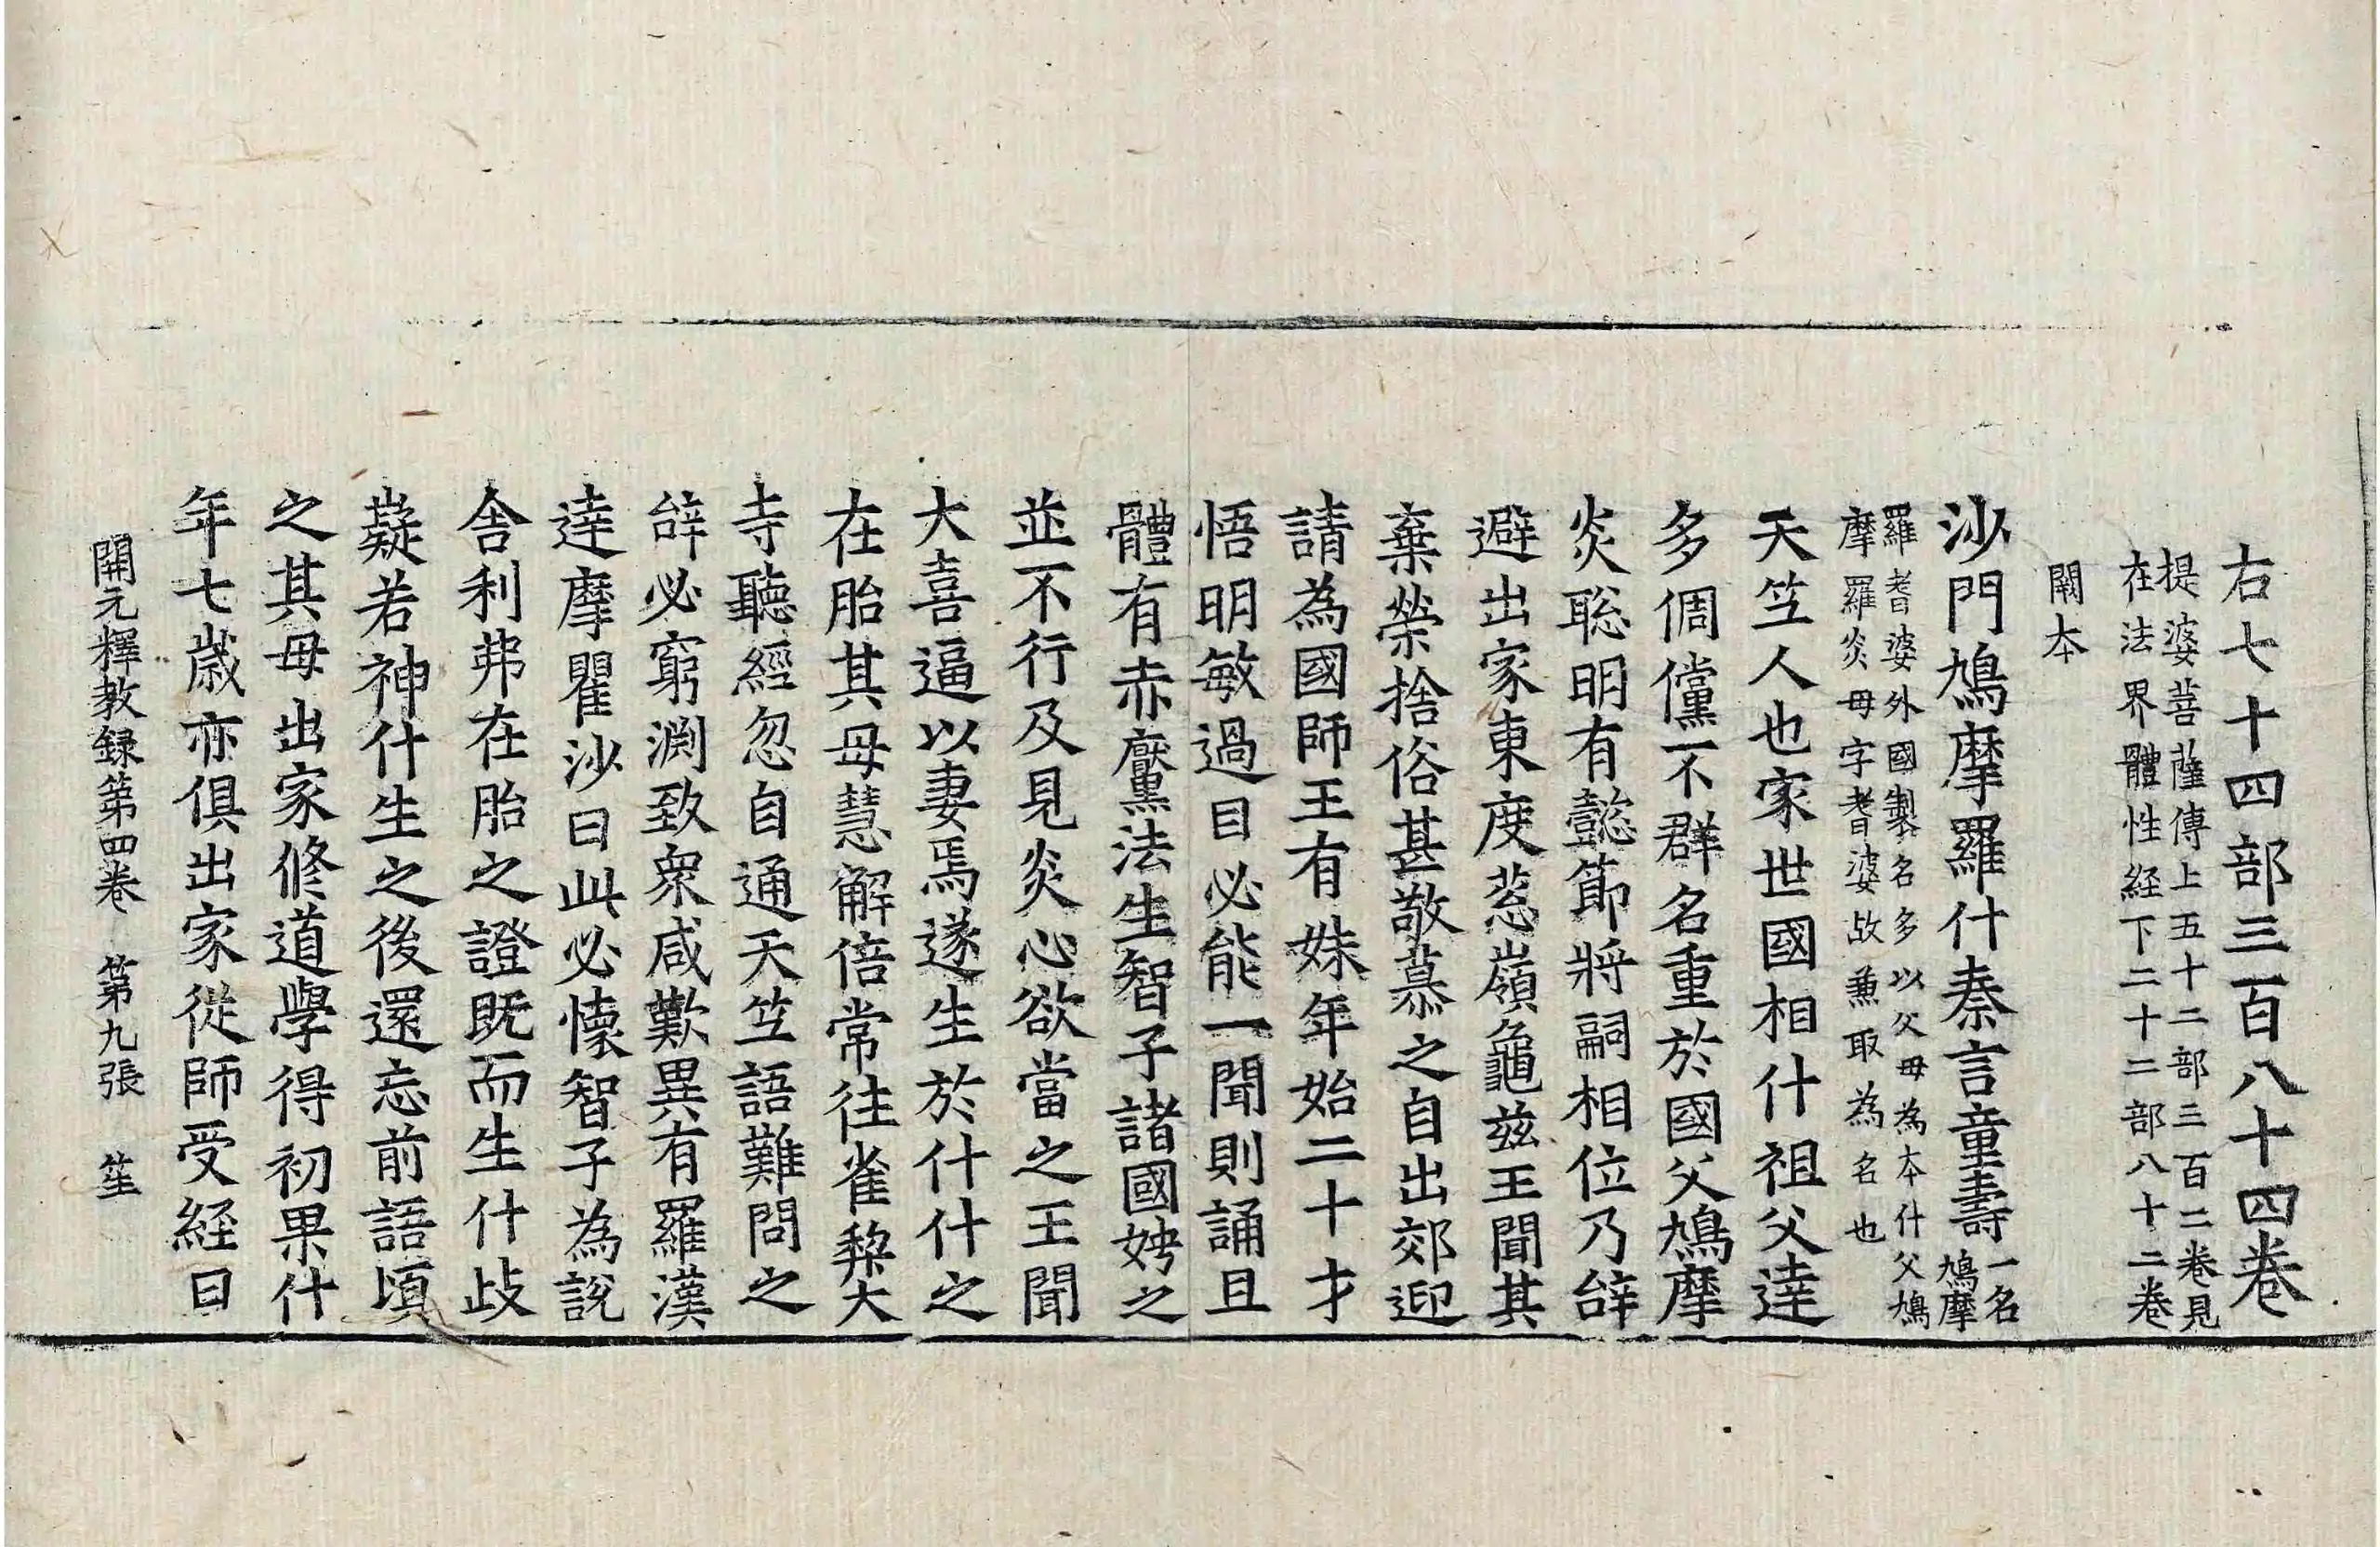 右七十四部三百八十四卷
提婆菩薩傳上五十二部三百二卷見
在法界體性経下二十二部八十二卷
闕夲
沙門鳩摩羅什秦言童壽一名鳩摩
羅耆婆外國製名多以父母為夲什父鳩
摩羅炎母字耆婆故兼取為名也
天竺人也家世國相什祖父逹
多倜儻不群名重於國父鳩摩
炎聡明有懿節將嗣相位乃辝
避出家東度葱嶺龜兹王聞其
棄榮捨俗甚敬慕之自出郊迎
請為國師王有妹年始二十才
悟明敏過目必能一聞則誦且
體有赤黶法生智子諸國娉之
並不行及見炎心欲當之王聞
大喜逼以妻焉遂生於什什之
在胎其母慧解倍常往雀梨大
寺聽經忽自通天竺語難問之
辝必窮渕致衆咸歎異有羅漢
逹摩瞿沙曰此必懷智子為說
舎利弗在胎之證既而生什歧
嶷若神什生之後還忘前語頃
之其母出家修道學得初果什
年七歳亦俱出家從師受経日
開元釋教録第四卷 第九張 笙